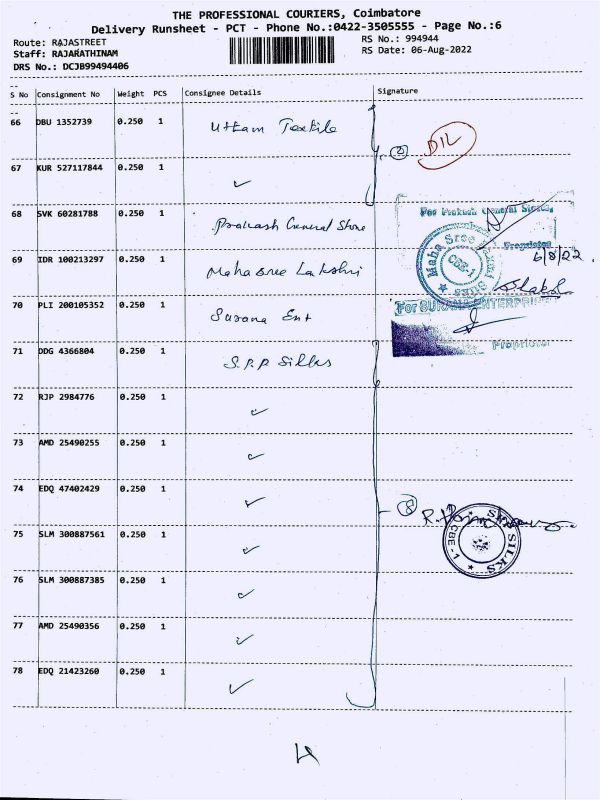 THE PROFESSIONAL COURIERS, Coimbatore
Delivery Runsheet - PCT - Phone No.:0422-3505555 - Page No.:6
Route: RAJASTREET
RS No.: 994944
Staff: RAJARATHINAM
RS Date: 06-Aug-2022
DRS No.: DCJB99494406
S No Consignment No Weight PCS Consignee Details Signature
66 DBU 1352739 0.250 1 Uttam Textile
② DIL
67 KUR 527117844 0.250 1 ✓
68 SVK 60281788 0.250 1 Prakash General Store
For Prakash General Stores,
Proprietor
69 IDR 100213297 0.250 1 Maha Sree Lakshmi
Maha Sree
SILKS
CBE-1
6/8/22
70 PLI 200105352 0.250 1 Surana Ent
For SURANA ENTERPRI
Proprietor
71 DDG 4366804 0.250 1 S.P.P Silks
72 RJP 2984776 0.250 1 ✓
73 AMD 25490255 0.250 1 ✓
74 EDQ 47402429 0.250 1 ✓
⑧
SILKS
CBE - 1
75 SLM 300887561 0.250 1 ✓
76 SLM 300887385 0.250 1 ✓
77 AMD 25490356 0.250 1 ✓
78 EDQ 21423260 0.250 1 ✓